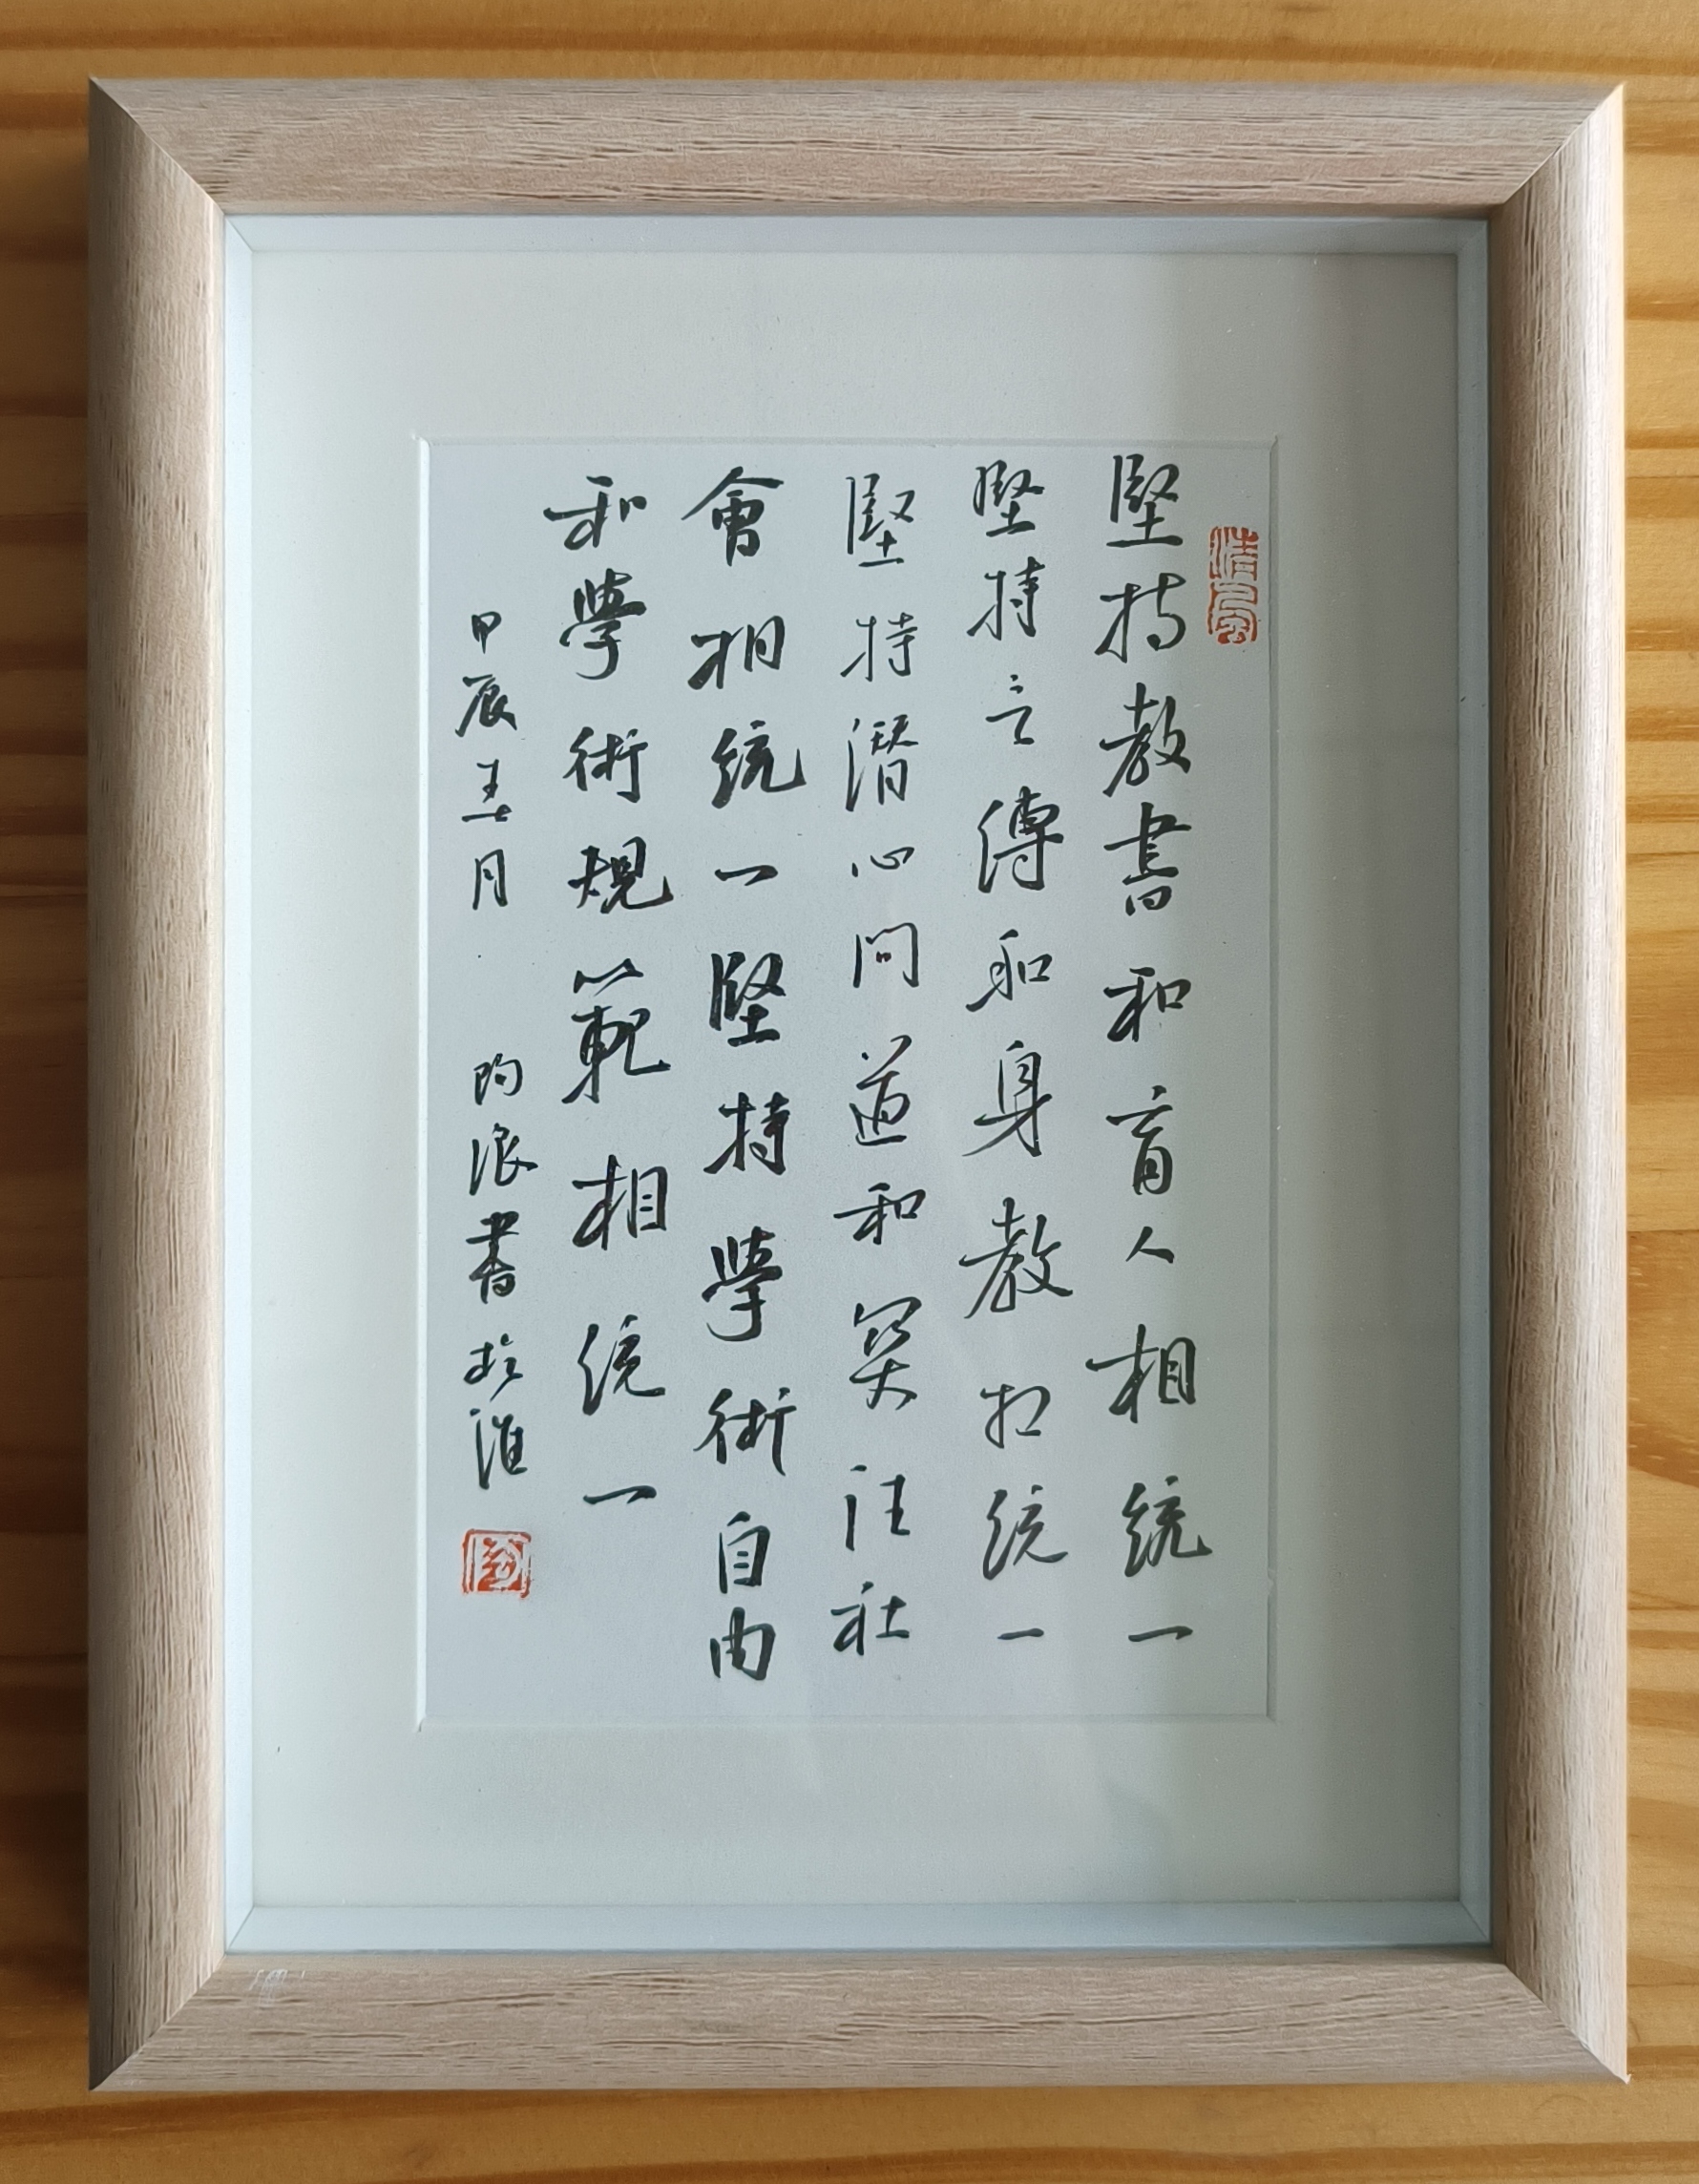 堅持教書和育人相統一
堅持言傳和身教相統一
堅持潛心問道和關注社
會相統一堅持學術自由
和學術規範相統一
甲辰春月 昀浪書於淮
清風